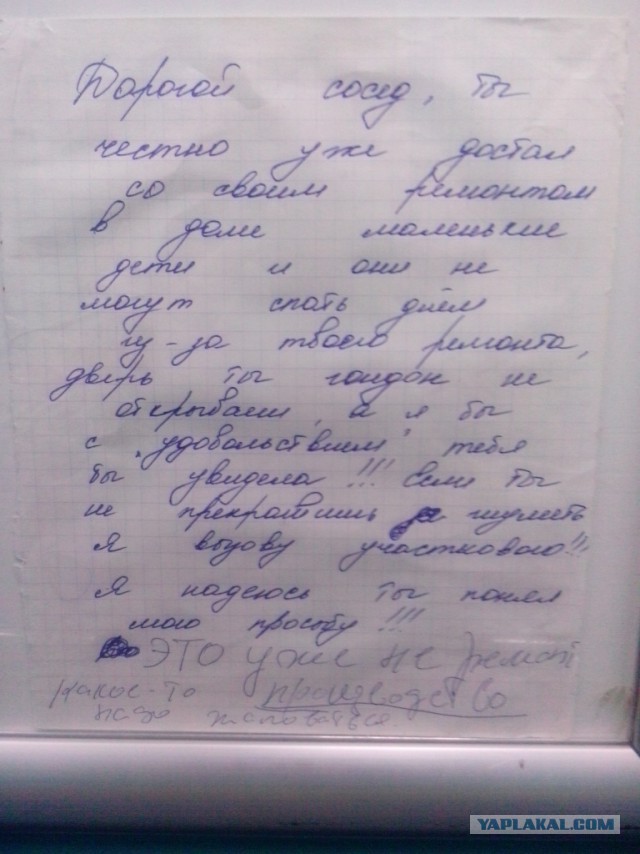 Дорогой сосед, ты
честно уже достал
со своим ремонтом
в доме маленькие
дети и они не
могут спать днём
из-за твоего ремонта,
дверь ты гандон не
открываеш, а я бы
с "удовольствием" тебя
бы увидела!!! Если ты
не прекратишь шуметь
я вызову участкового!!!
Я надеюсь ты понял
мою просьбу!!!
ЭТО уже не ремонт
какое-то производство
надо жаловаться
YAPLAKAL.COM